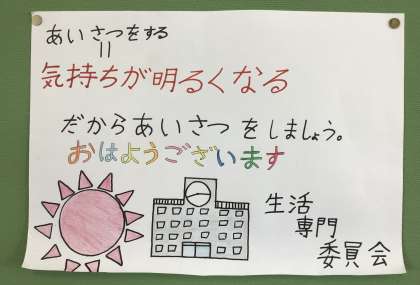 あいさつをする
=
気持ちが明るくなる
だからあいさつをしましょう。
おはようございます
生活
専門
委員会